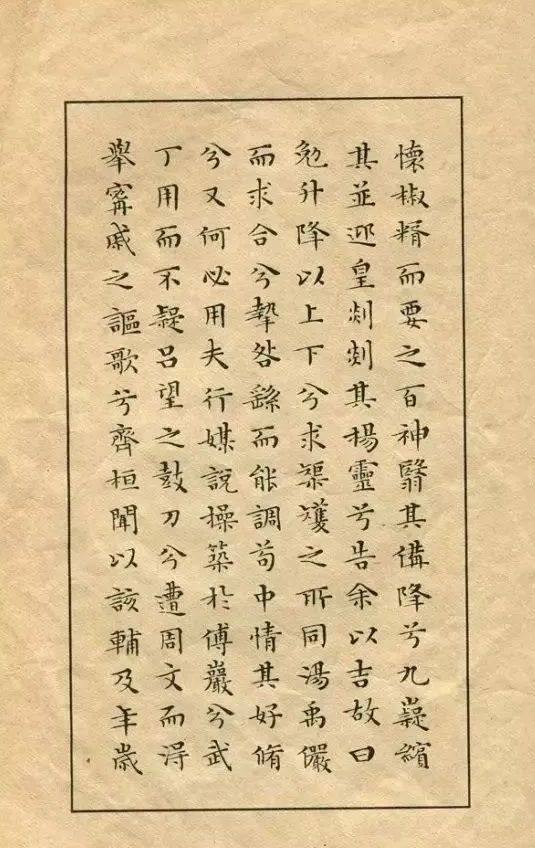 懷椒糈而要之百神翳其備降兮九嶷繽
其並迎皇剡剡其揚靈兮告余以吉故曰
勉升降以上下兮求榘矱之所同湯禹儼
而求合兮摯咎繇而能調苟中情其好脩
兮又何必用夫行媒說操築於傅巖兮武
丁用而不疑呂望之鼓刀兮遭周文而得
舉甯戚之謳歌兮齊桓聞以該輔及年歲